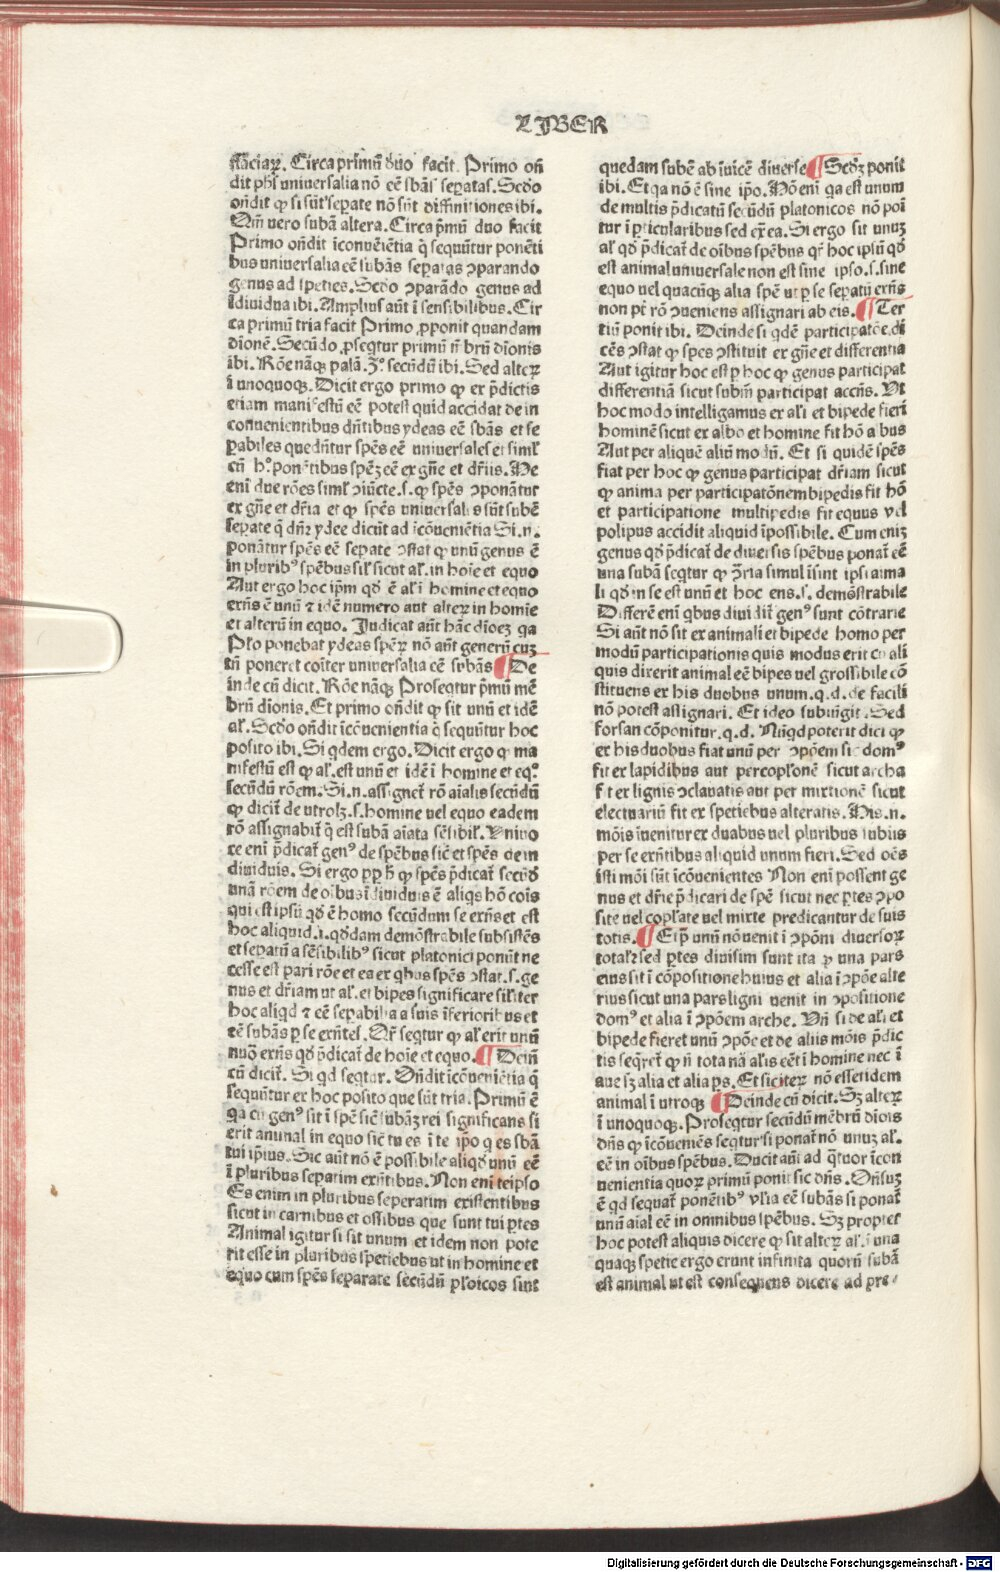 LIBER
stãciaꝝ. Circa primũ duo facit. Primo oñ
dit ꝙ universalia nõ eẽ sbãs sepatas. Scdo
oñdit ꝙ si sũt sepate nõ sũt diffinitiones ibi.
Qm̃ vero subã altera. Circa pmũ duo facit
Primo oñdit icõveniẽtia q̃ sequũtur ponẽti
bus universalia eẽ subãs sepatas ↄparando
genus ad species. Scdo ↄparãdo genus ad
idividua ibi. Amplius aũt i sensibilibus. Cir
ca primũ tria facit Primo ꝓponit quandam
diõnẽ. Secũdo ꝓseqtur primũ mẽbrũ diõnis
ibi. Rõe nãqꝫ palã. 3º secũdũ ibi. Sed alteꝝ
i unoquoqꝫ. Dicit ergo primo ꝙ ex pdictis
etiam manifestũ eẽ potest quid accidat de in
convenientibus dñtibus ydeas eẽ sbãs et se
pabiles quedñtur spẽs eẽ universales et simĩ
cũ hº ponẽtibus spẽꝫ eẽ ex gñe et dr̃iis. Ne
eni due rões simĩ ↄiũcte.s. ꝙ spẽs ↄponãtur
ex gñe et dr̃ia et ꝙ spẽs universalis sũt subẽ
separate q̃ dñr ydee dicũt ad icõveniẽtia Si.n.
ponãtur spẽs eẽ sepate ↄstat ꝙ unũ genus ẽ
in pluribꝰ spẽbus siĩ sicut aĩ. in hoie et equo
Aut ergo hoc ipm̃ qd ẽ aĩ i homine et equo
exñs ẽ unũ ⁊ idẽ numero aut alteꝝ in homie
et alterũ in equo. Judicat aũt hãc diõeꝫ qa
Plo ponebat ydeas spẽꝝ nõ aũt generũ cuꝫ
tñ poneret coĩter universalia eẽ subãs ¶ De
inde cũ dicit. Rõe nãqꝫ Proseqtur pmũ mẽ
brũ diõnis. Et primo oñdit ꝙ sit unũ et idẽ
aĩ. Scdo oñdit icõvenientia q̃ sequũtur hoc
posito ibi. Si qdem ergo. Dicit ergo ꝙ ma
nifestũ est ꝙ aĩ. est unũ et idẽ i homine et eqº
secũdũ rõem. Si.n. assignet rõ aialis secũdũ
ꝙ dicit de utroqꝫ.s. homine vel equo eadem
rõ assignabit q̃ est subã aiata sẽsibiĩ. Univo
ce eni pdicat genꝰ de spẽbus sic et spẽs de in
dividuis. Si ergo ꝓp h ꝙ spẽs pdicat secũd
unã rõem de oibus idividuis ẽ aliqs hõ cõis
qui est ipsũ qd ẽ homo secũdum se exñs et est
hoc aliquid.i. qddam demõstrabile subsistẽs
et sepatũ a sẽsibilibꝰ sicut platonici ponũt ne
cesse est pari rõe et ea ex qbus spẽs ↄstat.s. ge
nus et dr̃iam ut aĩ. et bipes significare siĩiter
hoc aliqd ⁊ eẽ sepabilia a suis iferioribus et
eẽ subãs p se exñtes. Qr̃ seqtur ꝙ aĩ erit unũ
nuõ exñs qd pdicat de hoie et equo. ¶ Dein
cũ dicit. Si qd seqtur. Oñdit icõveniẽtia q̃
sequũtur ex hoc posito que sũt tria. Primũ ẽ
qa cũ genꝰ sit i spẽ sic subã rei significans si
erit animal in equo sic tu es i te ipo q es sbã
tui ipius. Sic aũt nõ ẽ possibile aliqd unũ eẽ
i pluribus separatim exñtibus. Non eni te ipso
Es enim in pluribus seperatim existentibus
sicut in carnibus et ossibus que sunt tui ptes
Animal igitur si sit unum et idem non pote
rit esse in pluribus speciebus ut in homine et
equo cum spẽs separate secũdũ ploicos sint
quedam subẽ ab iuicẽ diverse ¶ Scdꝫ ponit
ibi. Et qa nõ ẽ sine ipo. Nõ eni qa est unum
de multis pdicatũ secũdũ platonicos nõ poni
tur i pticularibus sed ext ea. Si ergo sit unuꝫ
aĩ qd pdicat de oibus spẽbus qr hoc ipsũ qd
est animal universale non est sine ipso.s. sine
equo vel quacũqꝫ alia spẽ ut p se sepatũ exñs
non pt rõ ↄveniens assignari ab eis. ¶ Ter
tiũ ponit ibi. Deinde si qdẽ participatõe, di
cẽs ↄstat ꝙ spes ↄstituit ex gñe et differentia
Aut igitur hoc est p hoc ꝙ genus participat
differentiã sicut subm participat accñs. Ut
hoc modo intelligamus ex aĩi et bipede fieri
hominẽ sicut ex albo et homine fit hõ albus
Aut per aliquẽ aliũ modũ. Et si quidẽ spẽs
fiat per hoc ꝙ genus participat dr̃iam sicut
ꝙ anima per participatõnem bipedis fit hõ
et participatione multipedis fit equus vel
polipus accidit aliquid ipossibile. Cum eniꝫ
genus qd pdicat de diversis spẽbus ponat eẽ
una subã seqtur ꝙ ↄ̃ria simul isint ipsi aima
li qd in se est unũ et hoc ens.s. demõstrabile
Differẽ eni qbus dividit genꝰ sunt cõtrarie
Si aũt nõ sit ex animali et bipede homo per
modũ participationis quis modus erit cũ ali
quis dixerit animal eẽ bipes vel gressibile cõ
stituens ex his duobus unum.q.d. de facili
nõ potest assignari. Et ideo subiũgit. Sed
forsan cõponitur.q.d. Nũqd poterit dici ꝙ
ex his duobus fiat unũ per ↄpõem sic domꝰ
fit ex lapidibus aut per copĩonẽ sicut archa
fit ex lignis ↄclavatis aut per mixtionẽ sicut
electuariũ fit ex speciebus alteratis. His.n.
mõis ivenitur ex duabus vel pluribus subiis
per se exñtibus aliquid unum fieri. Sed oẽs
isti mõi sũt icõvenientes Non eni possent ge
nus et dr̃ie pdicari de spẽ sicut nec ptes ↄpo
site vel copĩate vel mixte predicantur de suis
totis. ¶ Et p unũ nõ venit i ↄpõni diversoꝝ
totaĩ sed ptes divisim sunt ita ꝙ una pars
eius sit i cõpositione huius et alia i ↄpõe alte
rius sicut una pars ligni venit in ↄpositione
domꝰ et alia i ↄpõem arche. Uñ si de aĩ et
bipede fieret unũ ↄpõe et de aliis mõis pdic
tis seqret ꝙ ñ tota nã aĩis eẽt i homine nec i
ave sꝫ alia et alia ps. Et sic iteꝝ nõ esset idem
animal i utroqꝫ ¶ Deinde cũ dicit. Sꝫ alteꝝ
i unoquoqꝫ. Proseqtur secũdũ mẽbrũ diõis
dñs ꝙ icõveniẽs seqtur si ponat nõ unuꝫ aĩ.
eẽ in oibus spẽbus. Ducit aũt ad qtuor icon
venientia quoꝝ primũ ponit sic dñs. Oñsuꝫ
ẽ qd sequat ponẽtibꝰ vĩia eẽ subãs si ponat
unũ aial eẽ in omnibus spẽbus. Sꝫ propter
hoc potest aliquis dicere ꝙ sit alteꝝ aĩ. i una
quaqꝫ specie ergo erunt infinita quorũ subã
est animal ut est consequens dicere ad pre⸗
Digitalisierung gefördert durch die Deutsche Forschungsgemeinschaft - DFG